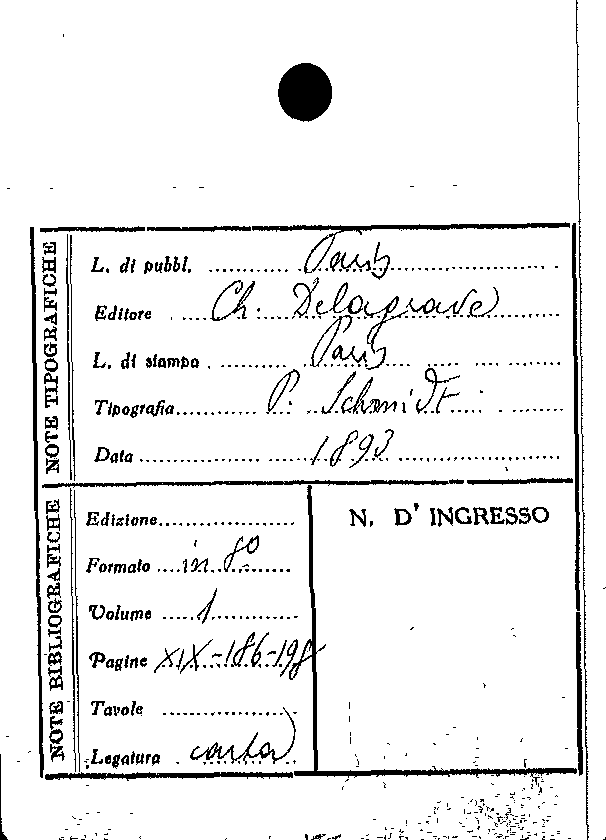 NOTE TIPOGRAFICHE
L. di pubbl. Paris
Editore Ch. Delagrave
L. di stampa Paris
Tipografia P. Schmidt
Data 1893
NOTE BIBLIOGRAFICHE
Edizione
Formato in 8º
Volume 1
Pagine XIX-186-198
Tavole
Legatura carta
N. D' INGRESSO